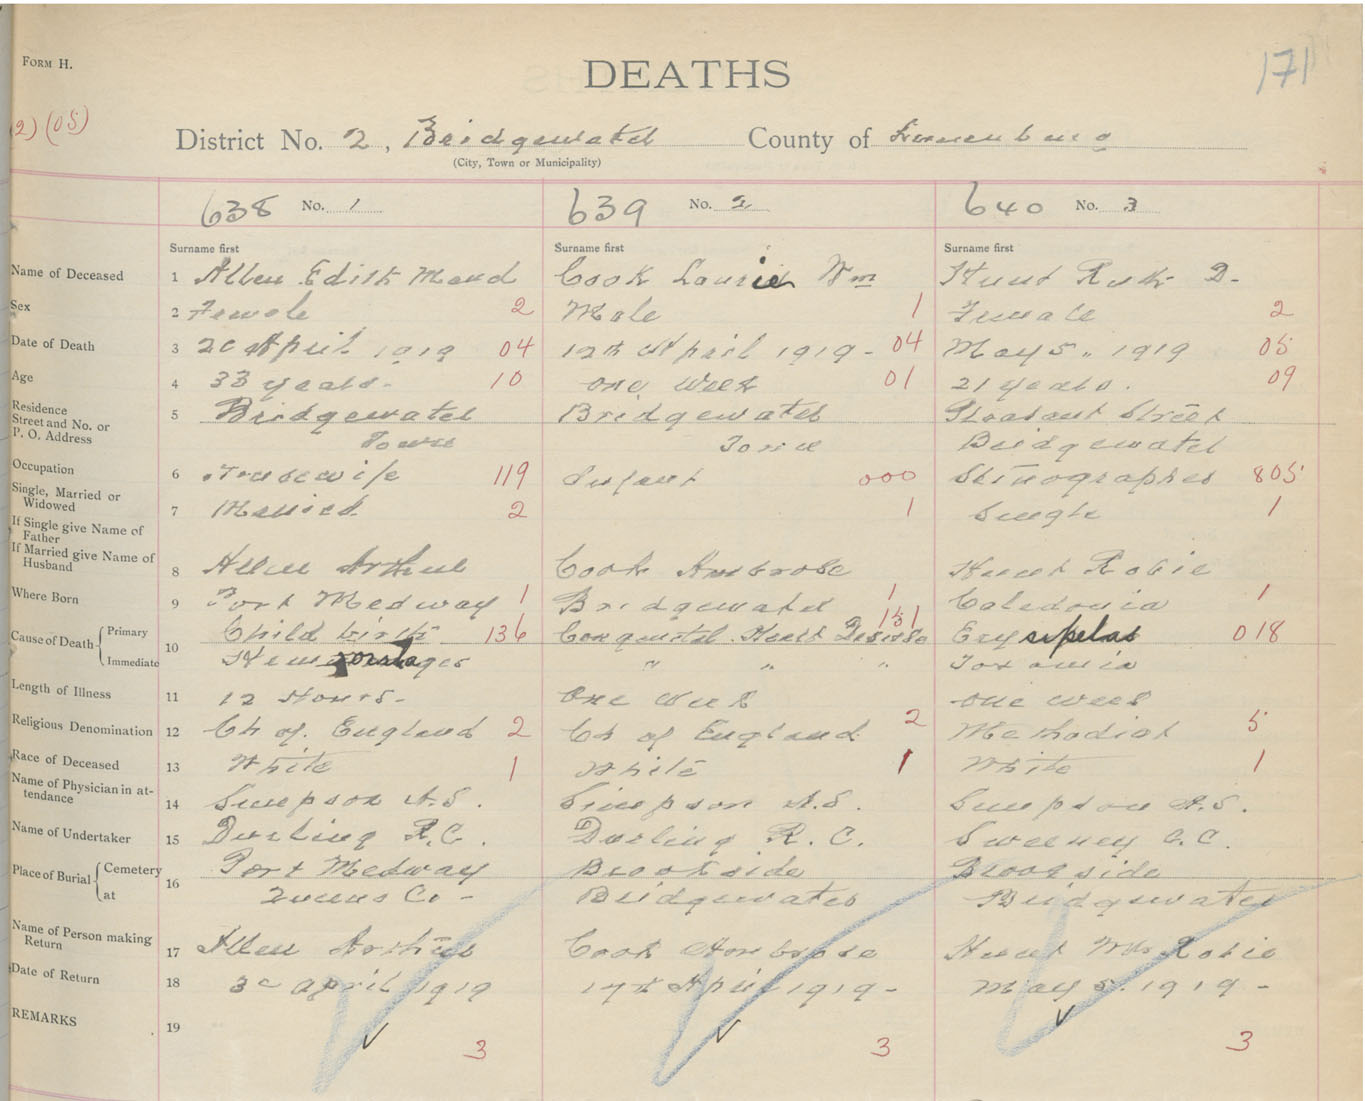 FORM H.
DEATHS
171
(2) (05)
District No. 2, Bridgewater County of Lunenburg
(City, Town or Municipality)
638 No. 1 639 No. 2 640 No. 3
Surname first Surname first Surname first
Name of Deceased 1 Allen Edith Maud Cook Laurie Wm Hunt Ruth D-
Sex 2 Female 2 Male 1 Female 2
Date of Death 3 2d April 1919 04 12th April 1919- 04 May 5" 1919 05
Age 4 33 years- 10 one week 01 21 years. 09
Residence
Street and No. or
P. O. Address
5 Bridgewater Bridgewater Pleasant Street
Town Town Bridgewater
Occupation 6 Housewife 119 Infant 000 Stenographer 805
Single, Married or
Widowed
7 Married 2 1 Single 1
If Single give Name of
Father
If Married give Name of
Husband
8 Allen Arthur Cook Ambrose Hunt Robie
Where Born 9 Port Medway 1 Bridgewater 1 Caledonia 1
Cause of Death { Primary 10 Child birth 136 Congenital Heart Disease 151 Erysipelas 018
Immediate Hemorrhage " " " Toxemia
Length of Illness 11 12 Hours- One week one week
Religious Denomination 12 Ch of England 2 Ch of England 2 Methodist 5
Race of Deceased 13 White 1 White 1 White 1
Name of Physician in at-
tendance
14 Simpson A.S. Simpson A.S. Simpson A.S.
Name of Undertaker 15 Dorling R.C. Dorling R. C. Sweeney C.C.
Place of Burial { Cemetery 16 Port Medway Brookside Brookside
at Queens Co- Bridgewater Bridgewater
Name of Person making
Return
17 Allen Arthur Cook Ambrose Hunt Mrs Robie
Date of Return 18 3d April 1919 17th April 1919- May 5. 1919-
REMARKS 19
3 3 3